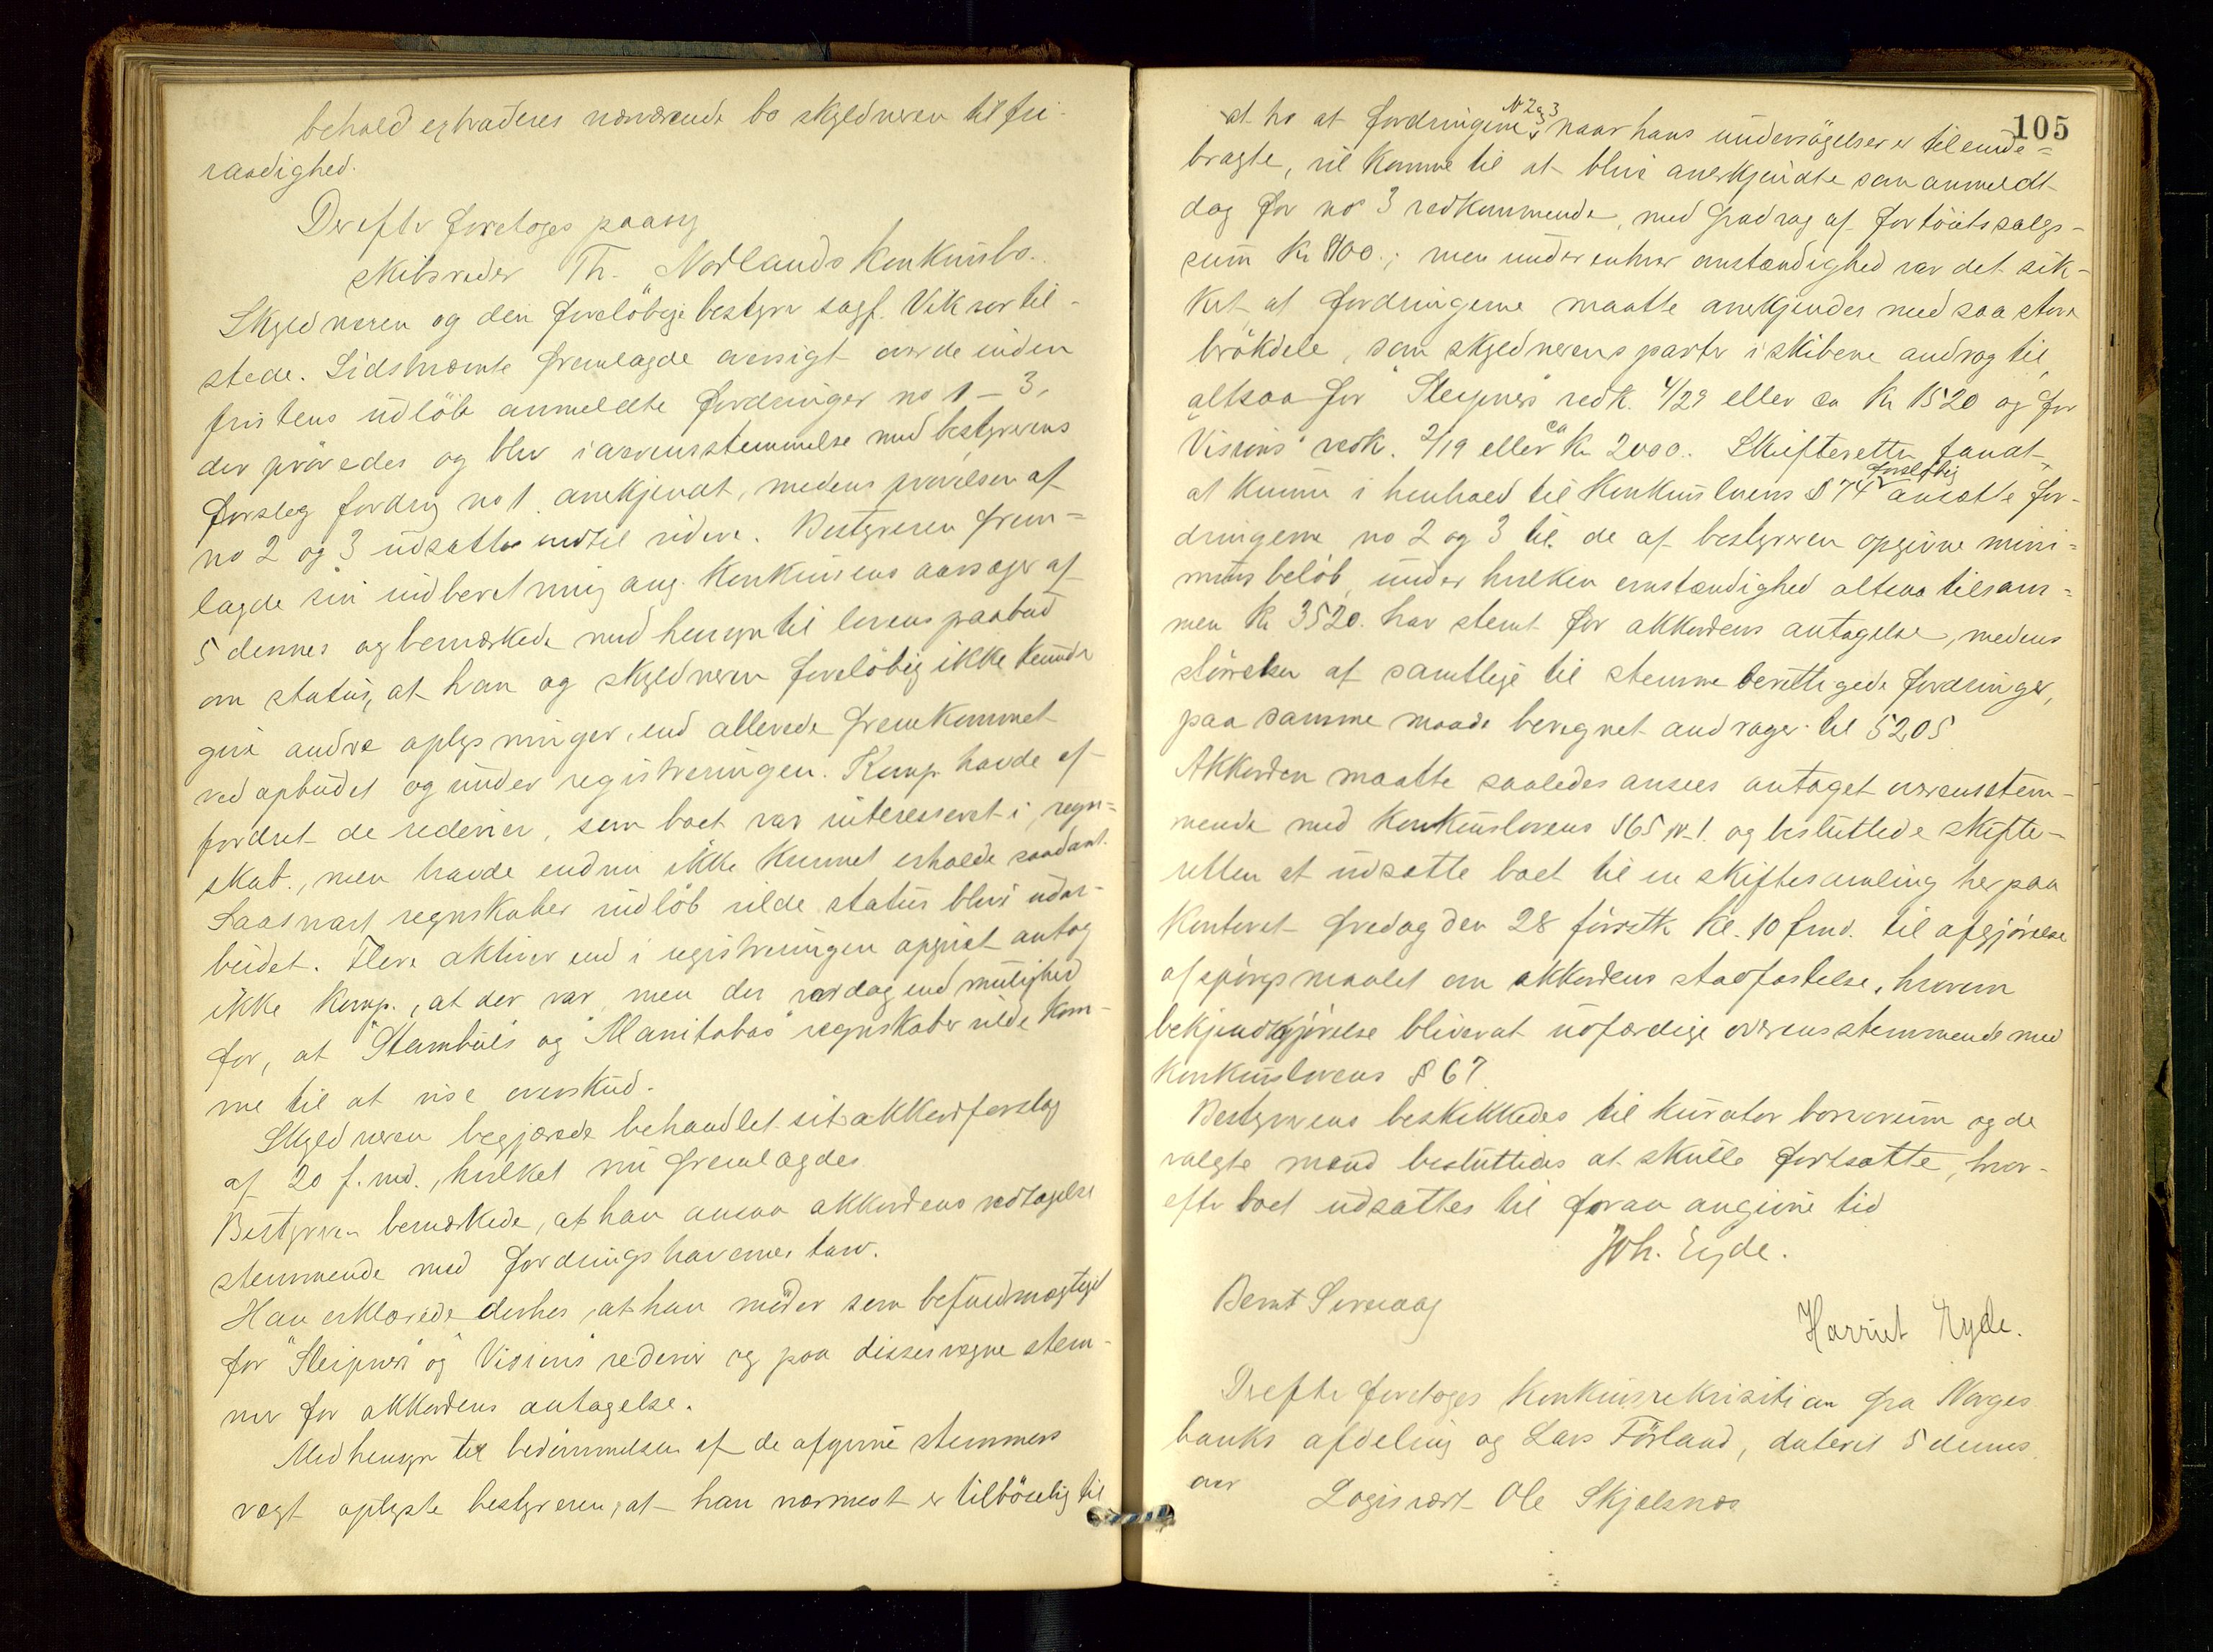 behold extraderes nærværende bo skyldneren til fri
raadighed.
Derefter foretoges paany
skibsreder Th. Norlands konkursbo.
Skyldneren og den foreløbige bestyrer sagf. Vik var til-
stede. Sidstnævnte fremlagde oversigt over de inden
fristens udløb anmeldte fordringer no 1 – 3,
der prøvedes og blev i overensstemmelse med bestyrerens
forslag fordring no 1 anerkjendt, medens prøvelsen af
no 2 og 3 udsattes indtil videre. Bestyreren frem-
lagde sin indberetning ang. konkursens aarsager af
5 dennes og bemærkede med hensyn til lovens paabud
om status, at han og skyldneren foreløbig ikke kunde
give andre oplysninger, end allerede fremkommet
ved opbudet og under registreringen. Komp. havde af-
fordret de rederier, som boet var interesseret i, regn-
skab, men havde endnu ikke kunnet erholde saadant.
Saasnart regnskaber indløb vilde status blive udar-
beidet. Flere aktiver end i registreringen opgivet antog
ikke komp., at der var, men der var dog end mulighed
for, at "Stambuls" og "Manitobas" regnskaber vilde kom-
me til at vise overskud.
Skyldneren begjærede behandlet sit akkordforslag
af 20 f. md., hvilket nu fremlagdes.
Bestyreren bemærkede, at han ansaa akkordens vedtagelse
stemmende med fordringshavernes tarv.
Han erklærede derhos, at han møder som befuldmægtiget
for "Sleipners" og "Visions" rederier og paa disses vegne stem-
mer for akkordens antagelse.
Med hensyn til bedømmelsen af de afgivne stemmers
vægt oplyste bestyreren, at han nærmest er tilbøielig til
105
at tro at fordringerne N 2 og 3 naar hans undersøgelser er tilende-
bragte, vil komme til at blive anerkjendte som anmeldt
dog for no 3 vedkommende, med fradrag af fortøiets salgs-
sum Kr 800.; men under enhver omstændighed var det sik-
kert, at fordringerne maatte anerkjendes med saa store
brøkdele, som skyldnerens parter i skibene androg til,
altsaa for "Sleipners" vedk. 4/29 eller ca Kr 1520 og for
"Visions" vedk. 2/19 eller ca Kr 2000. Skifteretten fandt
at kunne i henhold til Konkurslovens § 74 foreløbig ansætte for-
dringerne no 2 og 3 til de af bestyreren opgivne mini-
mums beløb, under hvilken omstændighed altsaa tilsam-
men Kr 3520. har stemt for akkordens antagelse, medens
størrelsen af samtlige til stemme berettigede fordringer,
paa samme maade beregnet andrager til 5205
Akkorden maatte saaledes ansees antaget overensstem-
mende med Konkurslovens § 65 N. 1. og besluttede skifte-
retten at udsætte boet til en skiftesamling her paa
kontoret fredag den 28 førstk kl. 10 fmd. til afgjørelse
af spørgsmaalet om akkordens stadfæstelse, hvorom
bekjendtgjørelse bliver at udfærdige overensstemmende med
Konkurslovens § 67.
Bestyreren beskikkedes til kurator bonorum og de
valgte mænd besluttedes at skulle fortsætte, hvor-
efter boet udsattes til foran angivne tid
Joh. Eyde.
Bernt
Harriet Eyde.
Derefter foretoges Konkursrekvisition fra Norges
banks afdeling og Lars Førland, dateret 5 dennes
over Logisvært Ole Skjelsnes